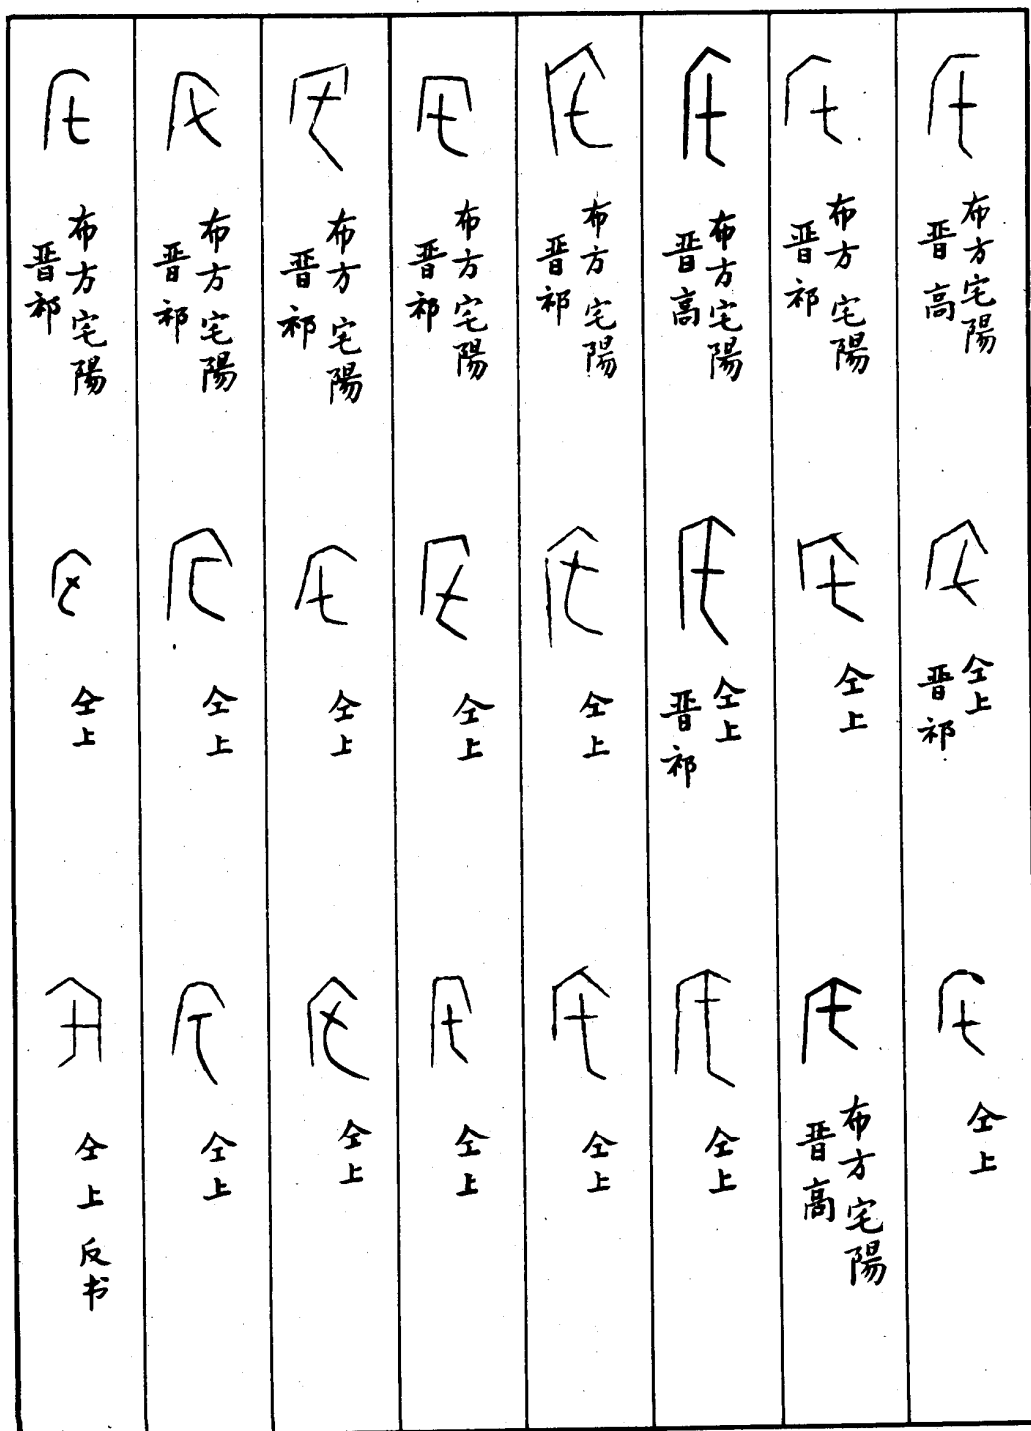 布方宅陽
晋高
仝上
晋祁
仝上
布方宅陽
晋祁
仝上
布方宅陽
晋高
布方宅陽
晋高
仝上
晋祁
仝上
布方宅陽
晋祁
仝上
仝上
布方宅陽
晋祁
仝上
仝上
布方宅陽
晋祁
仝上
仝上
布方宅陽
晋祁
仝上
仝上
布方宅陽
晋祁
仝上
仝上反书